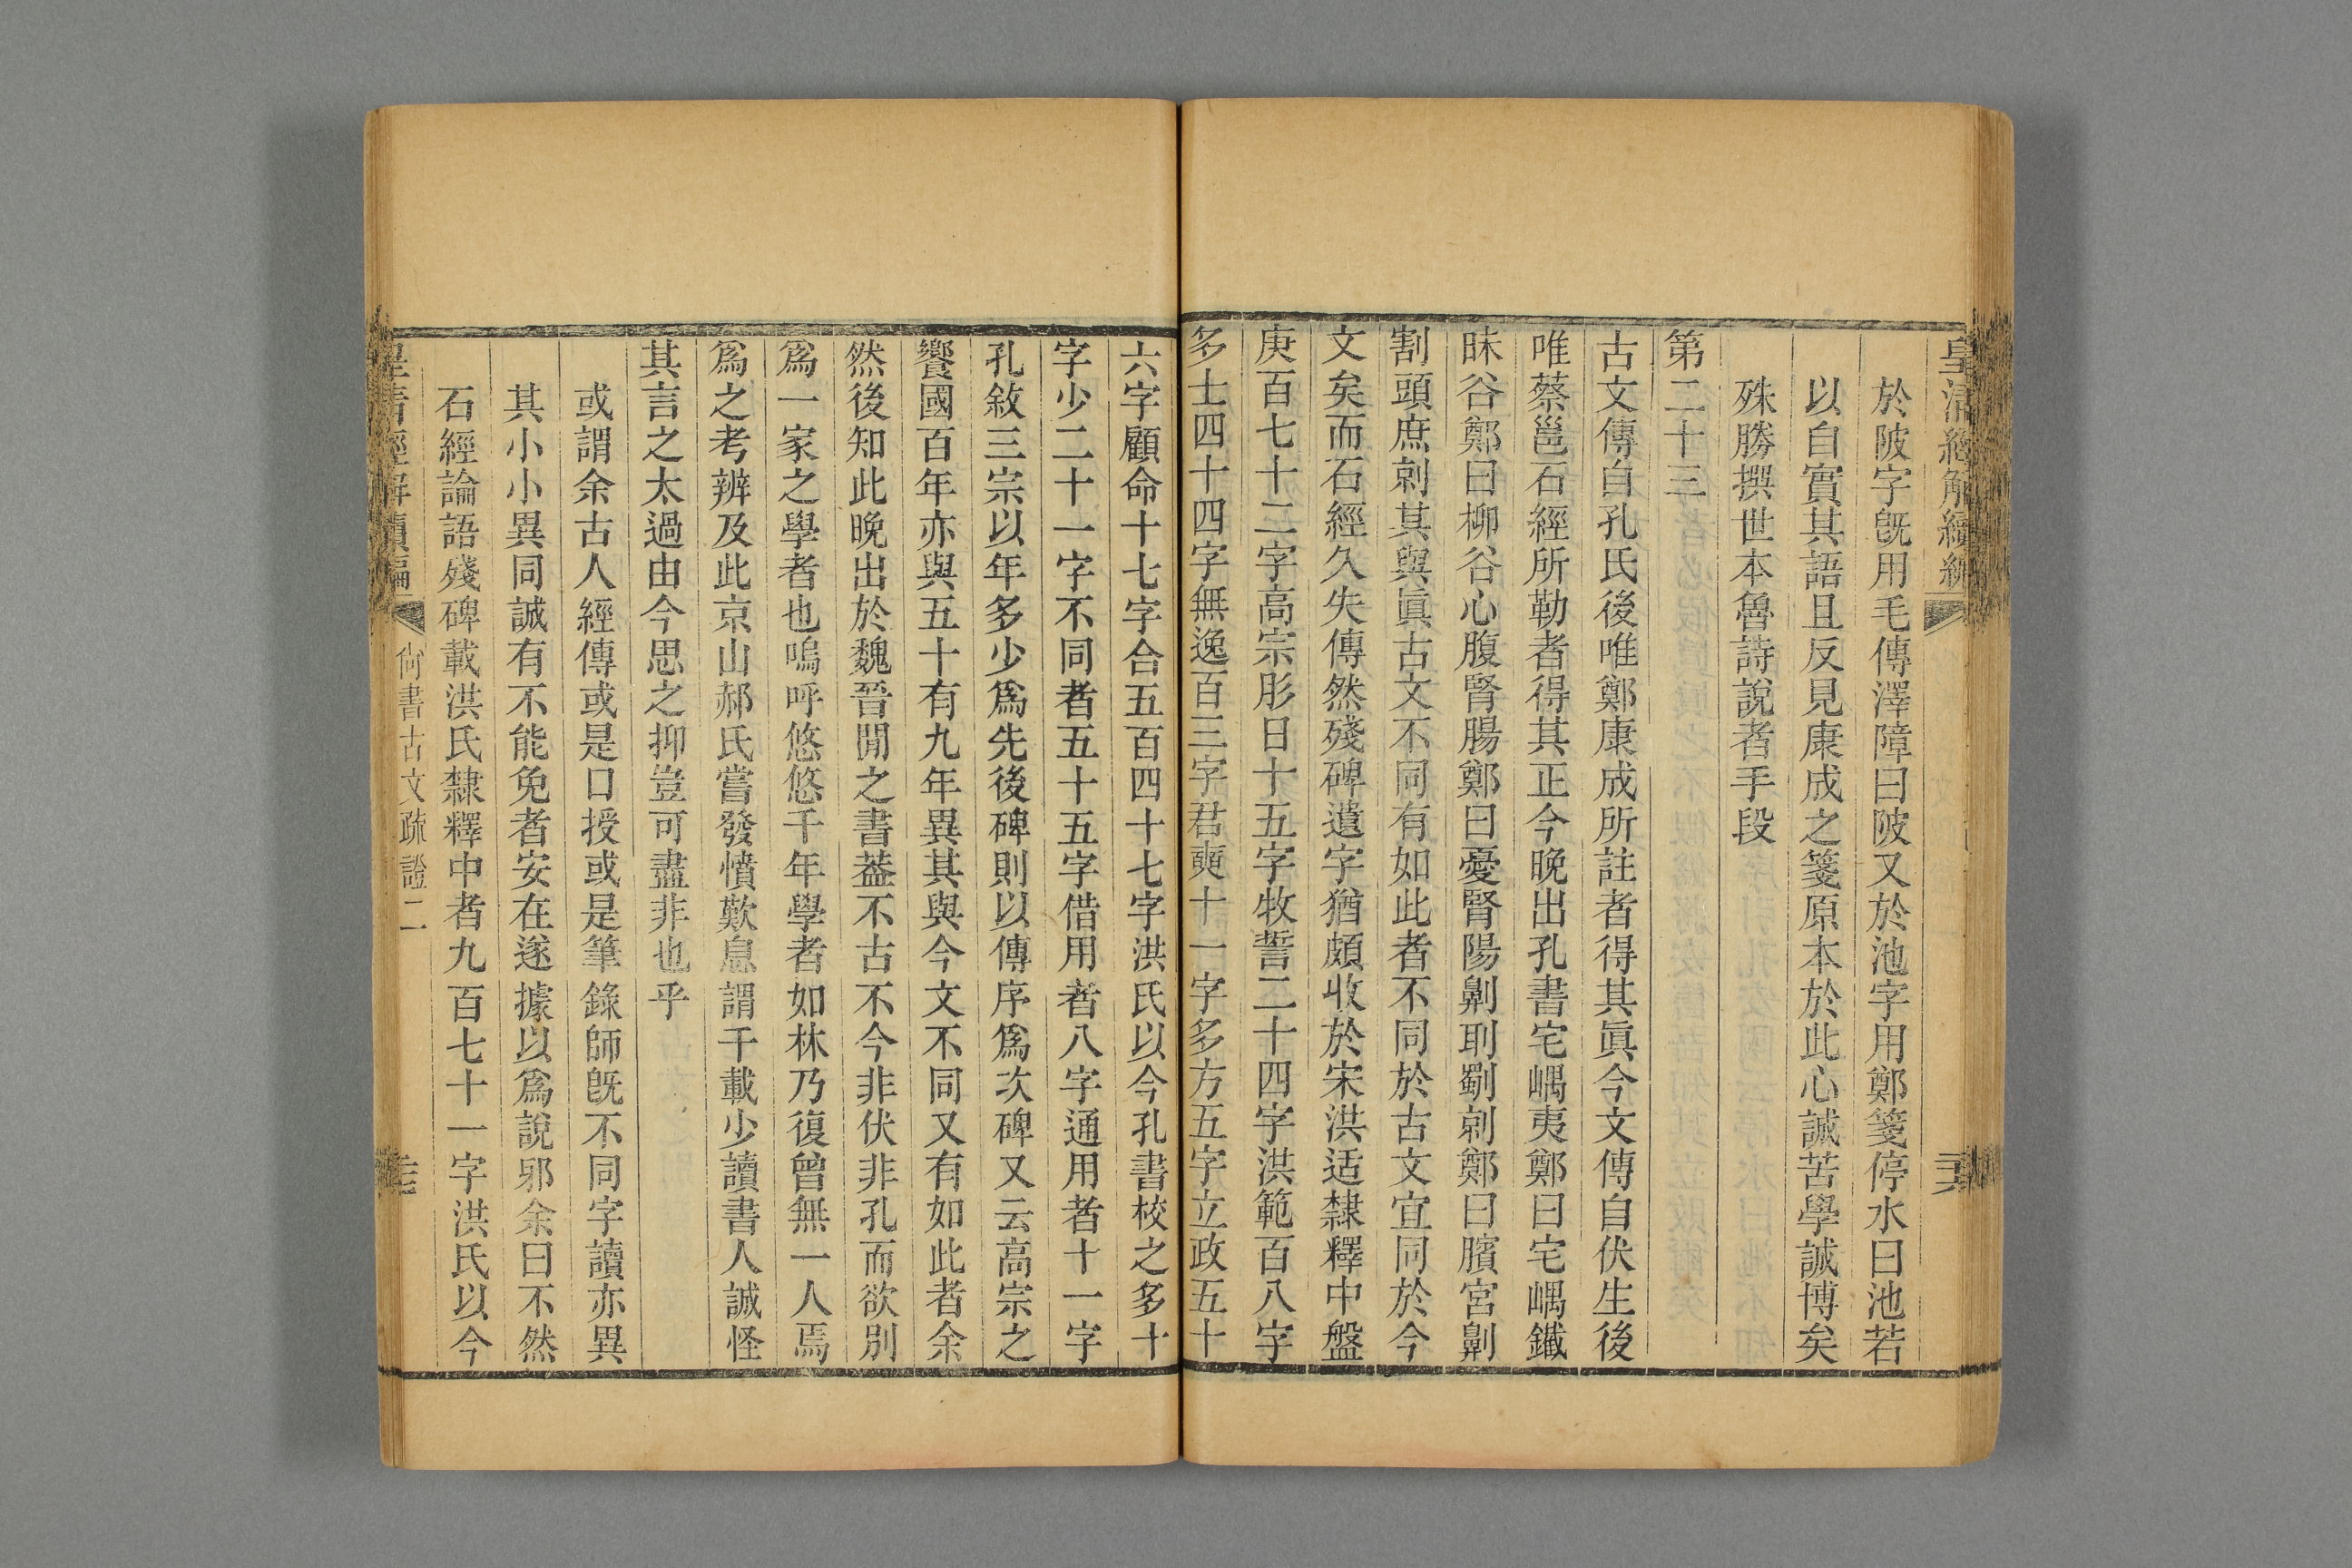 皇清經解續編
於陂字旣用毛傳澤障曰陂又於池字用鄭箋停水曰池若
以自實其語且反見康成之箋原本於此心誠苦學誠博矣
殊勝撰世本魯詩說者手段
第二十三
古文傳自孔氏後唯鄭康成所註者得其眞今文傳自伏生後
唯蔡邕石經所勒者得其正今晚出孔書宅嵎夷鄭曰宅嵎鐵
昧谷鄭曰柳谷心腹腎腸鄭曰憂腎陽劓刵劅剠鄭曰臏宮劓
割頭庶剠其與眞古文不同有如此者不同於古文宜同於今
文矣而石經久失傳然殘碑遺字猶頗收於宋洪适隸釋中盤
庚百七十二字高宗肜日十五字牧誓二十四字洪範百八字
多士四十四字無逸百三字君奭十一字多方五字立政五十
六字顧命十七字合五百四十七字洪氏以今孔書校之多十
字少二十一字不同者五十五字借用者八字通用者十一字
孔敘三宗以年多少爲先後碑則以傳序爲次碑又云高宗之
饗國百年亦與五十有九年異其與今文不同又有如此者余
然後知此晚出於魏晉閒之書葢不古不今非伏非孔而欲別
爲一家之學者也嗚呼悠悠千年學者如林乃復曾無一人焉
爲之考辨及此京山郝氏嘗發憤歎息謂千載少讀書人誠怪
其言之太過由今思之抑豈可盡非也乎
或謂余古人經傳或是口授或是筆錄師旣不同字讀亦異
其小小異同誠有不能免者安在遂據以爲說邪余曰不然
石經論語殘碑載洪氏隸釋中者九百七十一字洪氏以今
皇清經解續編 尙書古文疏證二